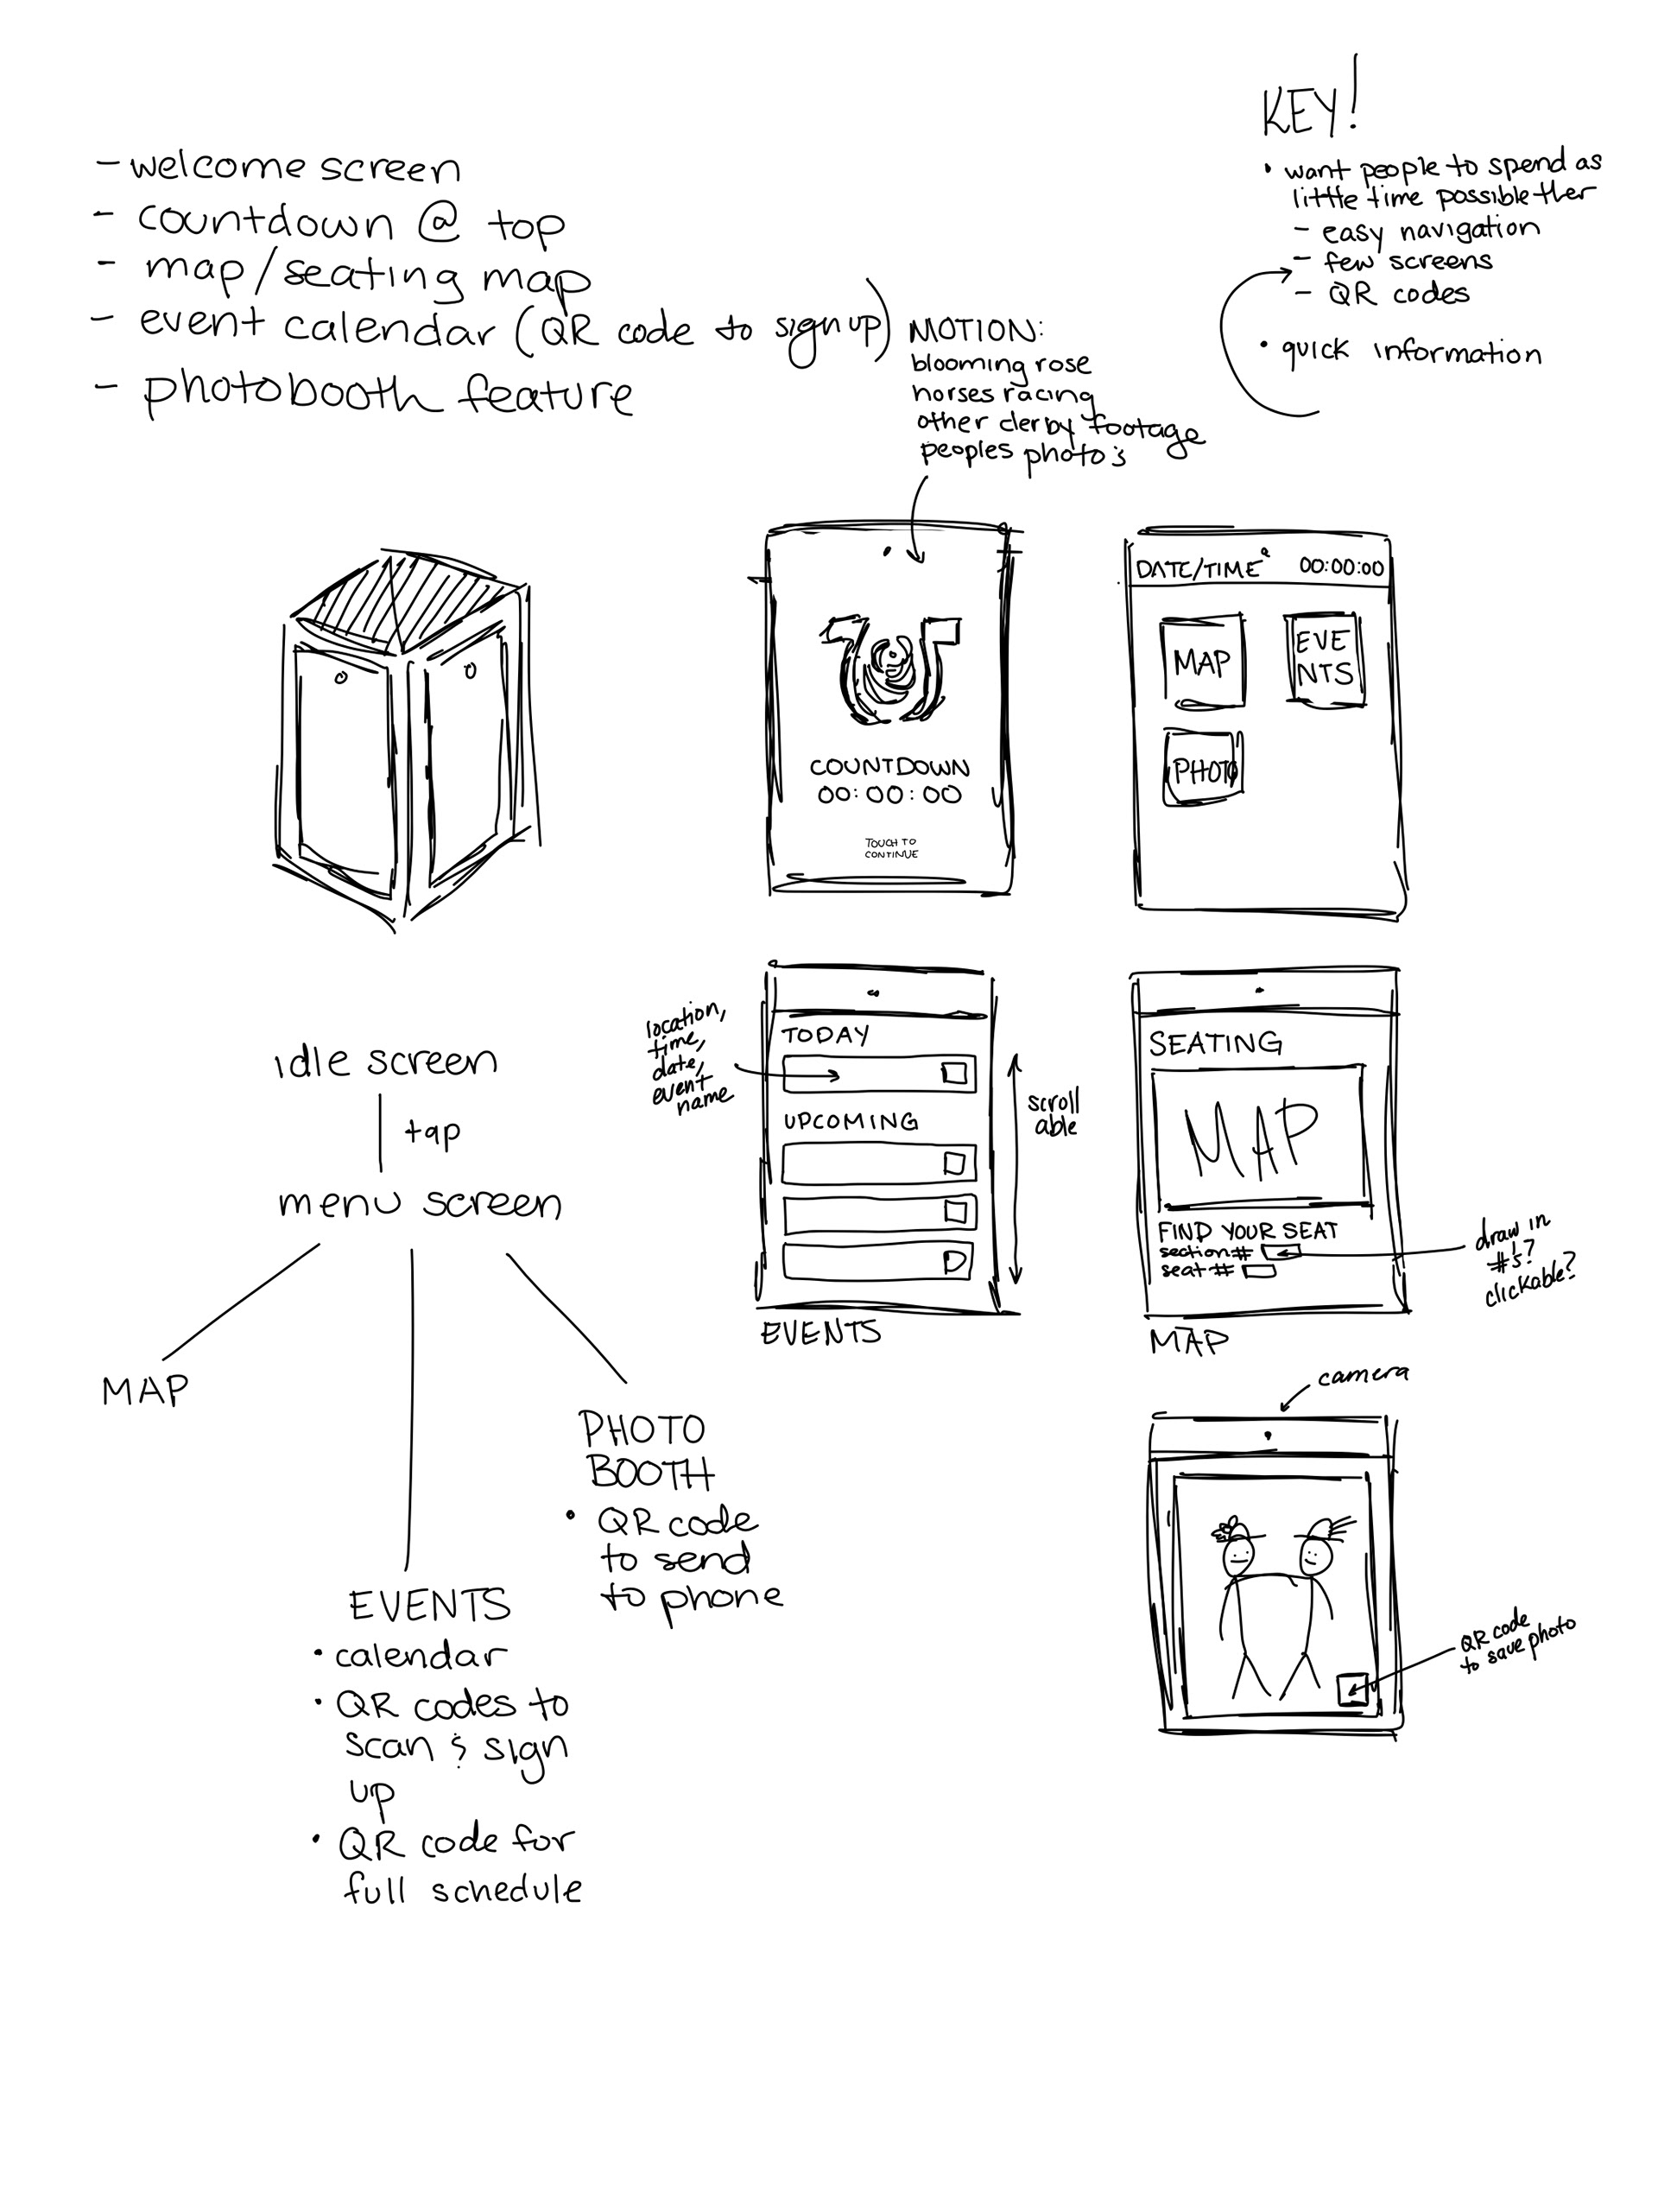 - welcome screen
- countdown @ top
- map/seating map
- event calendar (QR code to sign up)
- photobooth feature
KEY!
• want people to spend as
little time possible ther
- easy navigation
- few screens
- QR codes
• quick information
MOTION:
blooming rose
horses racing
other derby footage
peoples photo's
COUNTDOWN
00:00:00
TOUCH TO
CONTINUE
DATE/TIME 00:00:00
MAP
EVE
NTS
PHOTO
idle screen
tap
menu screen
MAP
PHOTO
BOOTH
• QR code
to send
to phone
EVENTS
• calendar
• QR codes to
scan & sign
up
• QR code for
full schedule
location,
time,
date,
event
name
TODAY
UPCOMING
scroll
able
EVENTS
SEATING
MAP
FIND YOUR SEAT
section#
seat#
draw in
#'s?
clickable?
MAP
camera
QR code
to save photo